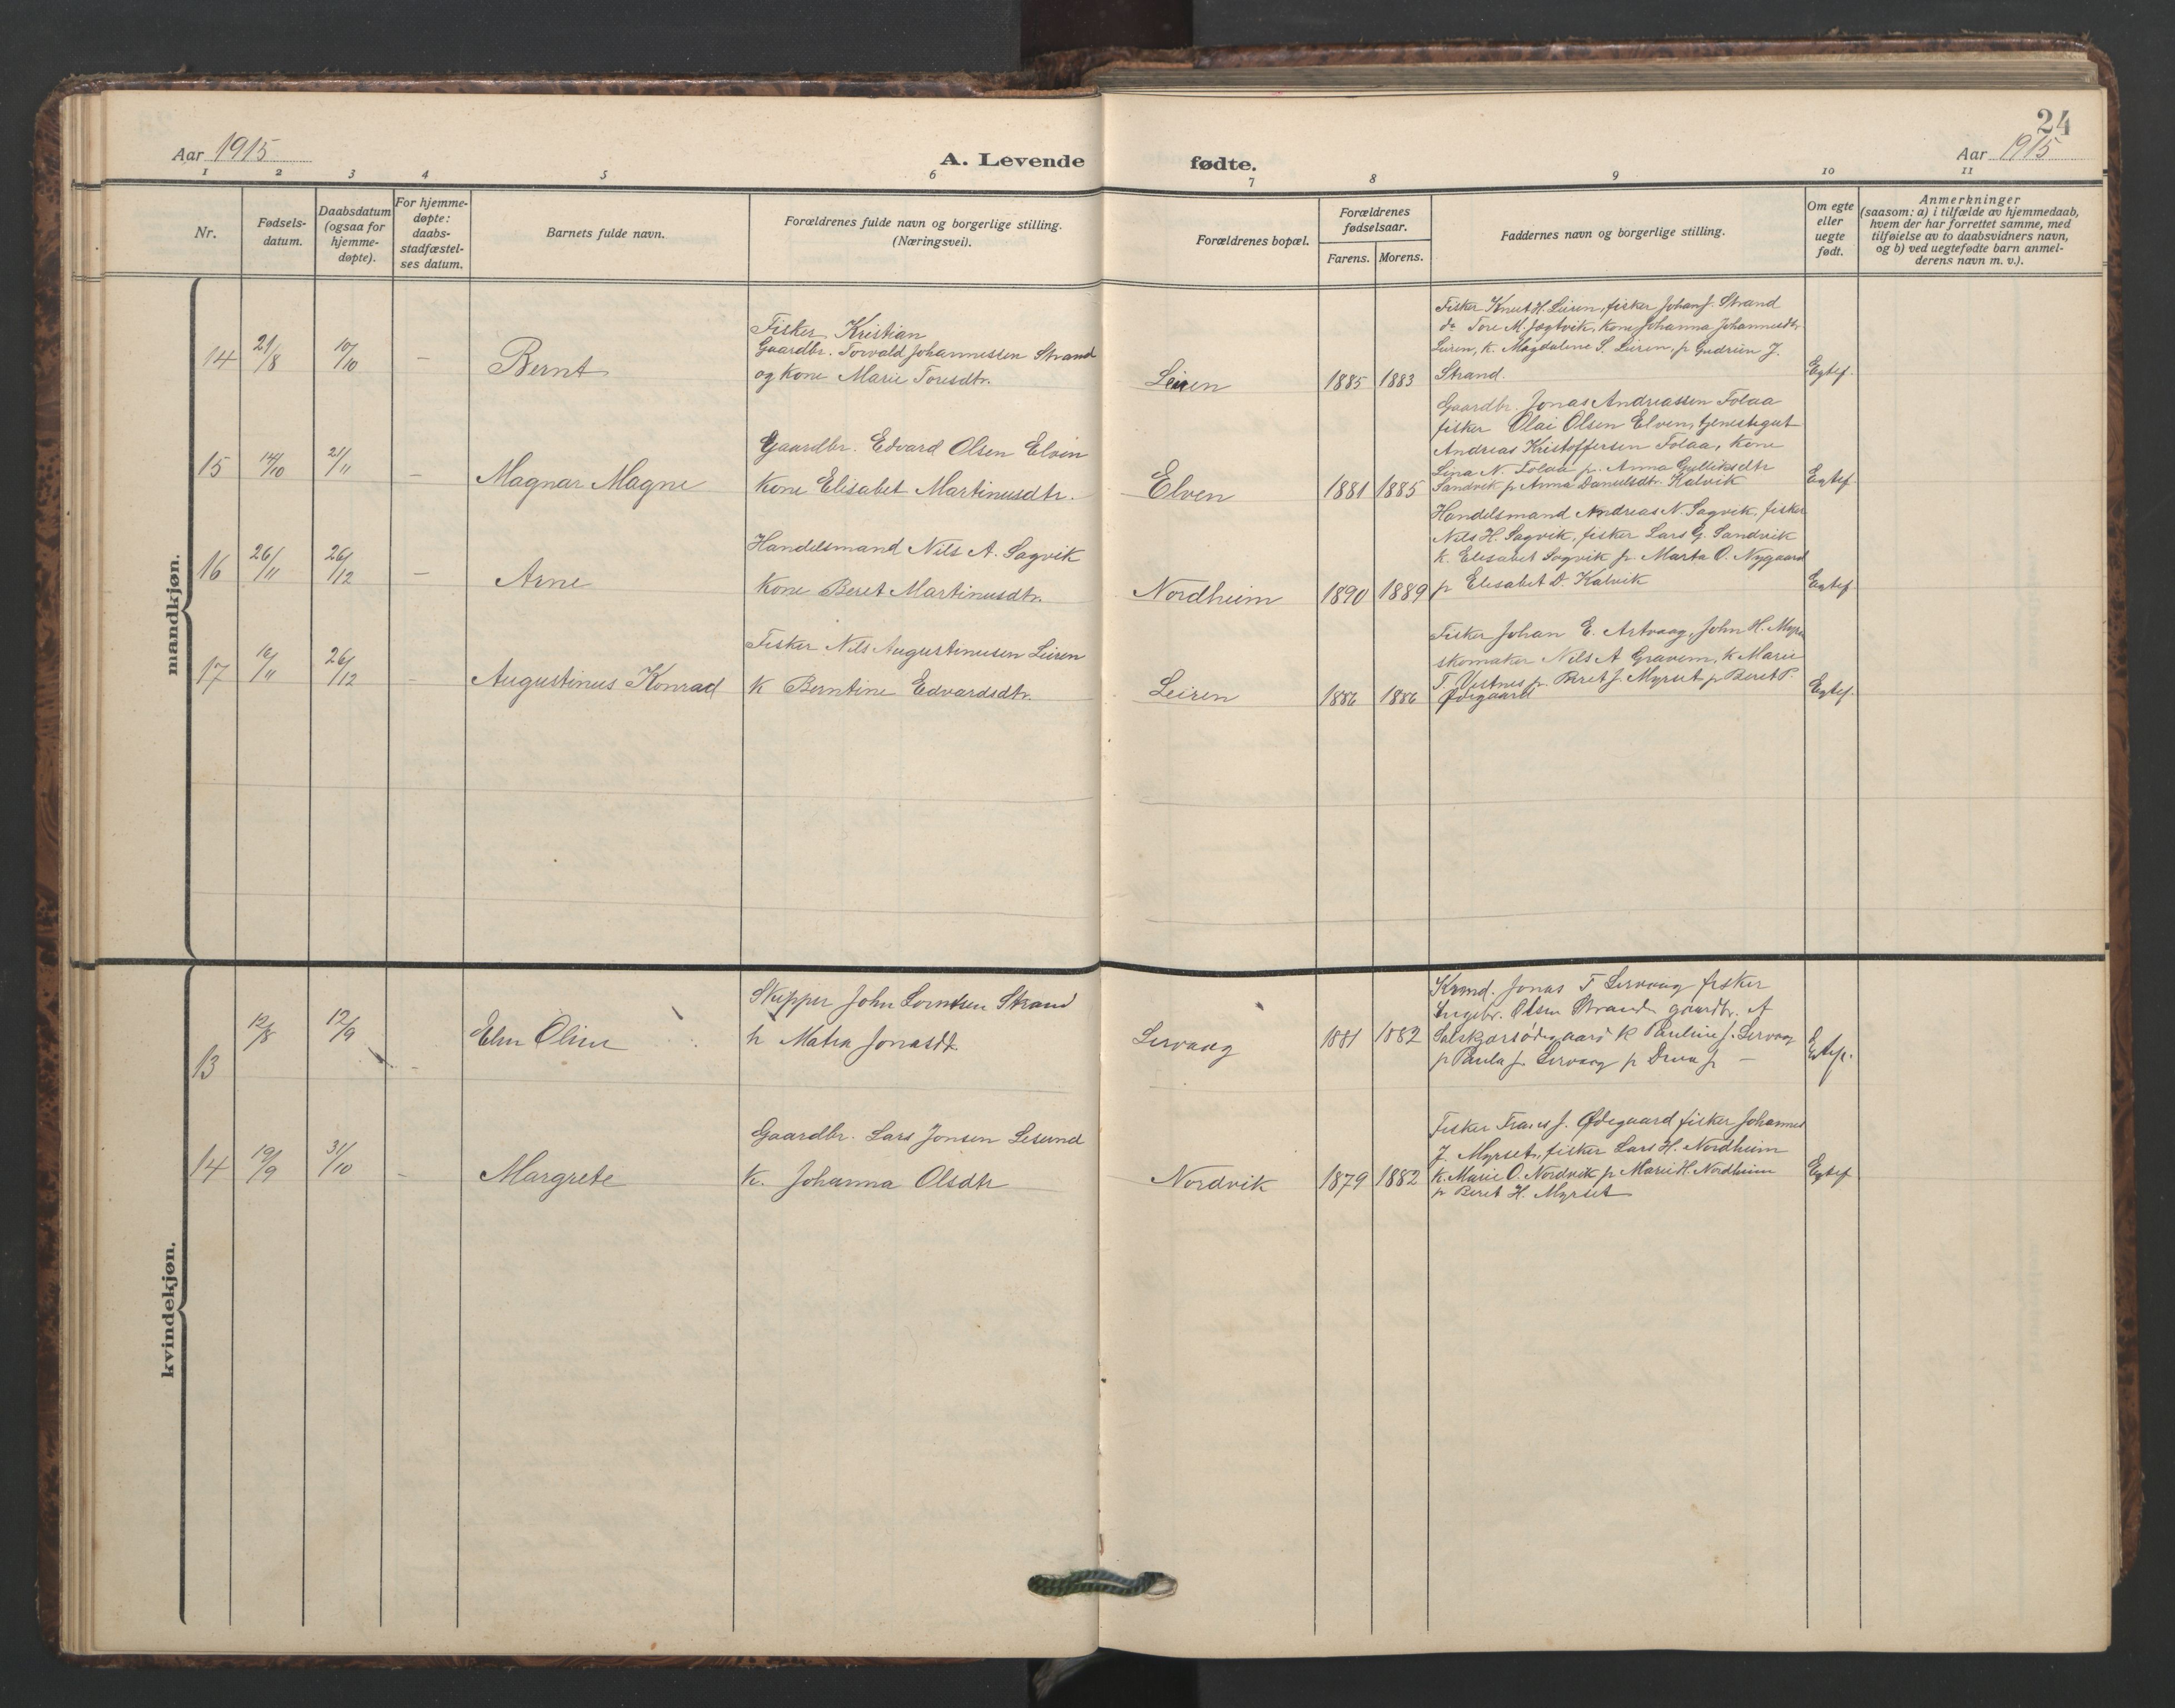 24
Aar 1915
A. Levende fødte.
Aar 1915
1 2 3 4 5 6 7 8 9 10 11
Nr.
Fødsels-
datum.
Daabsdatum
(ogsaa for
hjemme-
døpte).
For hjemme-
døpte:
daabs-
stadfæstel-
ses datum.
Barnets fulde navn.
Forældrenes fulde navn og borgerlige stilling.
(Næringsvei).
Forældrenes bopæl.
Forældrenes
fødselsaar.
Farens. Morens.
Faddernes navn og borgerlige stilling.
Om egte
eller
uegte
født.
Anmerkninger
(saasom: a) i tilfælde av hjemmedaab,
hvem der har forrettet samme, med
tilføielse av to daabsvidners navn,
og b) ved uegtefødte barn anmel-
derens navn m. v.).
mandkjøn.
14 21/8 10/10 – Bernt
Fisker Kristian
Gaardbr. Torvald Johannessen Strand
og Kone Marie Toresdtr.
Leiren 1885 1883
Fisker Knut H. Leiren, fisker Johan J. Strand
do Tore M. Jøgtvik, Kone Johanna Johannesdtr.
Leiren, K. Magdalene S. Leiren, p Gudrun J.
Strand.
Egtef.
15 14/10 21/11 – Magnar Magne
Gaardbr. Edvard Olsen Elven
Kone Elisabet Martinusdtr.
Elven 1881 1885
Gaardbr. Jonas Andreassen Folaa
fisker Olai Olsen Elven, tjenestegut
Andreas Kristoffersen Folaa, Kone
Lina N. Folaa p. Anna Gulliksdtr
Sandvik p Anna Danielsdtr. Kalvik
Egtef.
16 26/11 26/12 – Arne
Handelsmand Nils A. Sagvik
Kone Beret Martinusdtr.
Nordheim 1890 1889
Handelsmand Andreas N. Sagvik, fisker
Nils H. Sagvik, fisker Lars G. Sandvik
K. Elisabet Sagvik p Marta O. Nygaard
p Elisabet D. Kalvik
Egtef.
17 16/11 26/12 – Augustinus Konrad
Fisker Nils Augustinusen Leiren
K Berntine Edvardsdtr.
Leiren 1886 1886
Fisker Johan E. Artvaag, John H. Myr
skomaker Nils A Gravem, K Marie
T. Vestnes p. Beret J. Myrset p Beret P.
Ødegaard
Egtef.
kvindekjøn.
13 12/8 12/9 – Oline
Skipper John Strand
Jonasdt.
Lervaag 1881 1882
Jonas T Lervaag fisker
Ingebr. Olsen Strand gaardbr. A
K Pauline J. Lervaag
p Paula J. Lervaag p J –
Egtef.
14 19/9 31/10 – Margrete
Gaardbr. Lars Jonsen Lesund
K. Johanna Olsdtr
Nordvik 1879 1882
Fisker Frans J. Ødegaard fisker Johannes
J. Myrset, fisker Lars H. Nordheim
K. Marie O. Nordvik p Marie H. Nordheim
p Beret H. Myrset
Egtef.